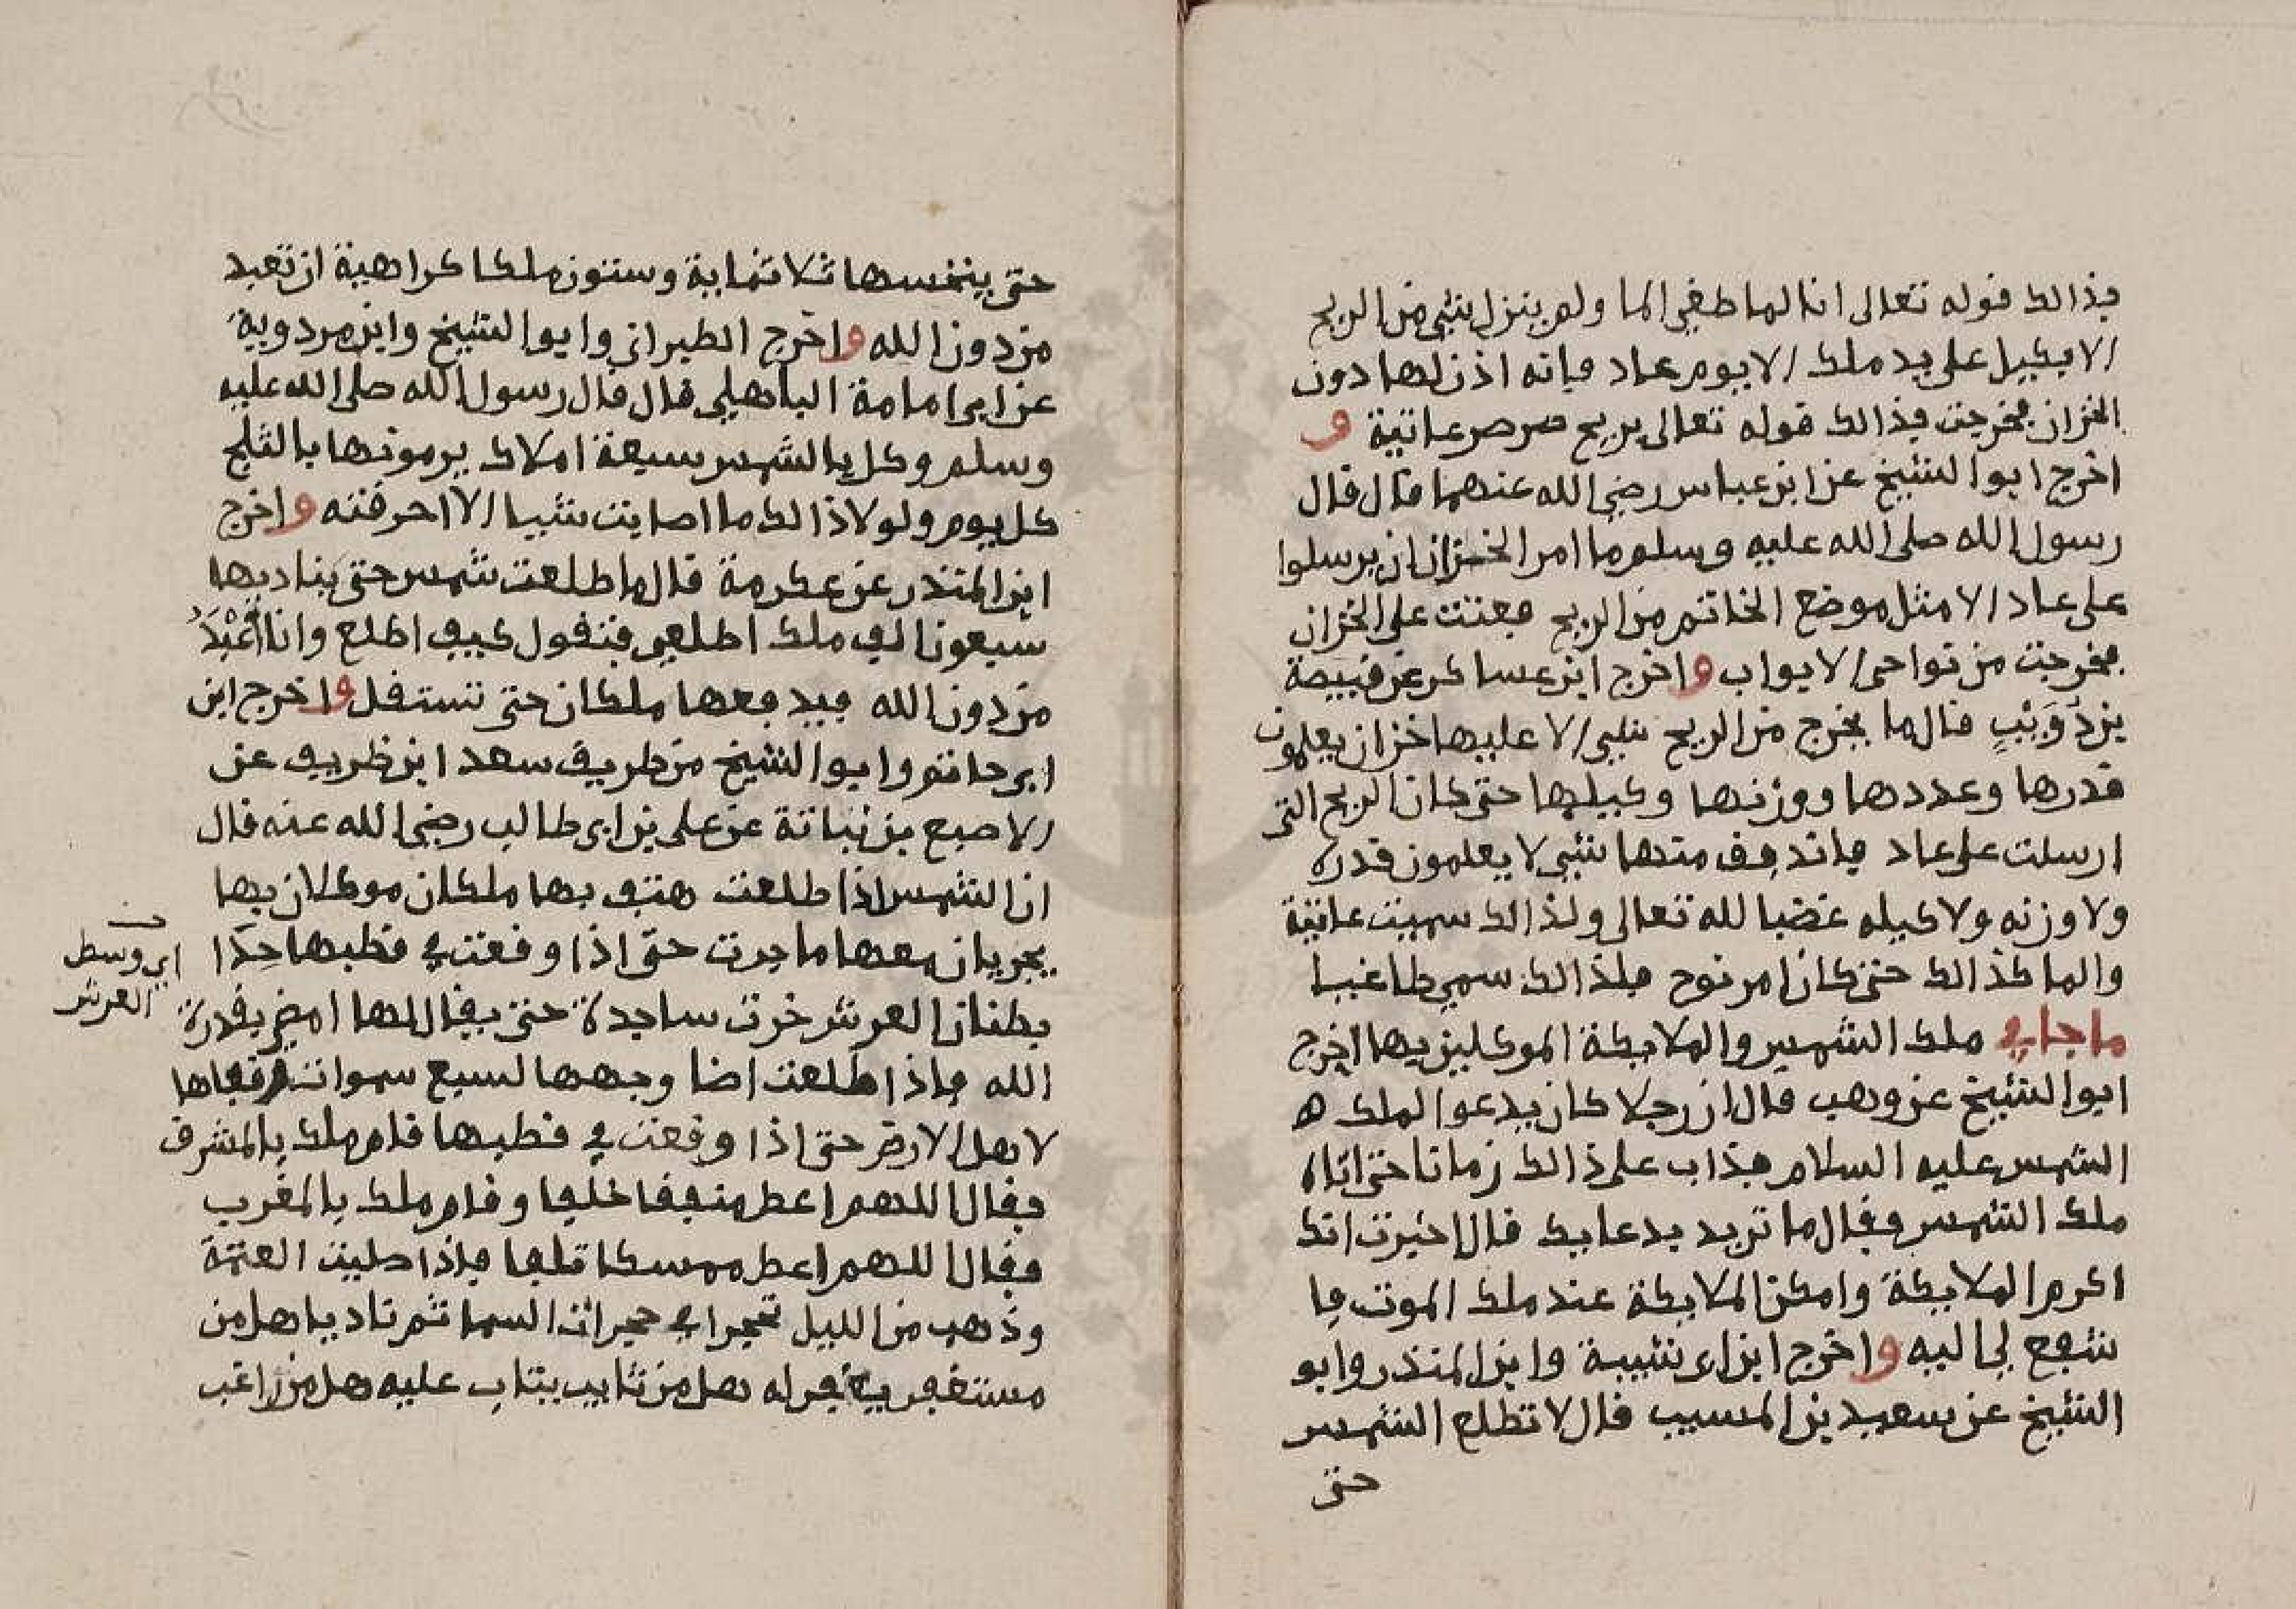 فذالك قوله تعالى انا لما طغى الما ولم ينزل شئ من الريح
الا بكيل على يد ملك الا يوم عاد فانه اذن لها دون
الخزان فخرجت فذالك قوله تعالى بريح صرصر عاتية و
اخرج ابوا الشيخ عن ابن عباس رضي الله عنهما قال قال
رسول الله صلى الله عليه وسلم ما امر الخزان ان يرسلوا
على عاد الا مثل موضع الخاتم من الريح فعتت على الخزان
فخرجت من نواحى الابواب واخرج ابن عساكر عن قبيصة
بن ذُوَيْبٍ قال ما يخرج من الريح شئ الا عليها خزان يعلمون
قدرها وعددها ووزنها وكيلها حتى كان الريح التى
ارسلت على عاد فاندفف منها شئ لا يعلمون قدره
ولا وزنه ولا كيله غضبا لله تعالى ولذالك سميت عاتية
والما كذالك حتى كان امر نوح فلذالك سمي طاغيا
ما جا في ملك الشمس والملايكة الموكلين بها اخرج
ابوا الشيخ عن وهب قال ان رجلا كان يدعوا لملك ه
الشمس عليه السلام فذاب على ذالك زمانا حتى اتاه
ملك الشمس فقال ما تريد بدعايك قال اخبرت انك
اكرم الملايكة وامكن الملايكة عند ملك الموت فا
شفع لي اليه واخرج ابن ابى شيبة وابن المنذر وابو
الشيخ عن سعيد بن المسيب قال لا تطلع الشمس
حتى
حتى ينخسها ثلاثماية وستون ملكا كراهية ان تعبد
من دون الله واخرج الطبراني وابوا الشيخ وابن مردوية
عن ابى امامة الباهلي قال قال رسول الله صلى الله عليه
وسلم وكل بالشمس سبعة املاك يرمونها بالثلج
كل يوم ولولا ذالك ما اصابت شيا الا احرقته واخرج
ابن المنذر عن عكرمة قال ما طلعت شمس حتى يناديها
سبعون الف ملك اطلعي فتقول كيف اطلع وانا اُعْبَدُ
من دون الله فيدفعها ملكان حتى تستقل واخرج ابن
ابى حاتم وابوا الشيخ من طريق سعد ابن ظريف عن
الاصبع بن نباتة عن على بن ابى طالب رضي الله عنه قال
ان الشمس اذا طلعت هتف بها ملكان موكلان بها
يجريان معها ما جرت حتى اذا وقعت في قطبها حِذَا
اي وسط
العرش
بطنان العرش خرت ساجدة حتى يقال لها امضي بقدرة
الله فاذا طلعت اضا وجهها لسبع سموات وقفاها
لاهل الارض حتى اذا وقعت في قطبها قام ملك بالمشرق
فقال اللهم اعط منفقا خلفا وقام ملك بالمغرب
فقال اللهم اعط ممسكا تلفا فاذا صليت العتمة
وذهب من الليل حجرات السما ثم ناديا هل من
مستغفر فيغفر له هل من تايب يتاب عليه هل من راغب